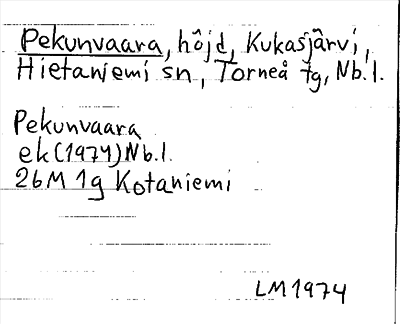 Pekunvaara, höjd, Kukasjärvi,
Hietaniemi sn, Torneå tg, Nb.l.
Pekunvaara
ek (1974) Nb.l.
26M 1g Kotaniemi
LM 1974